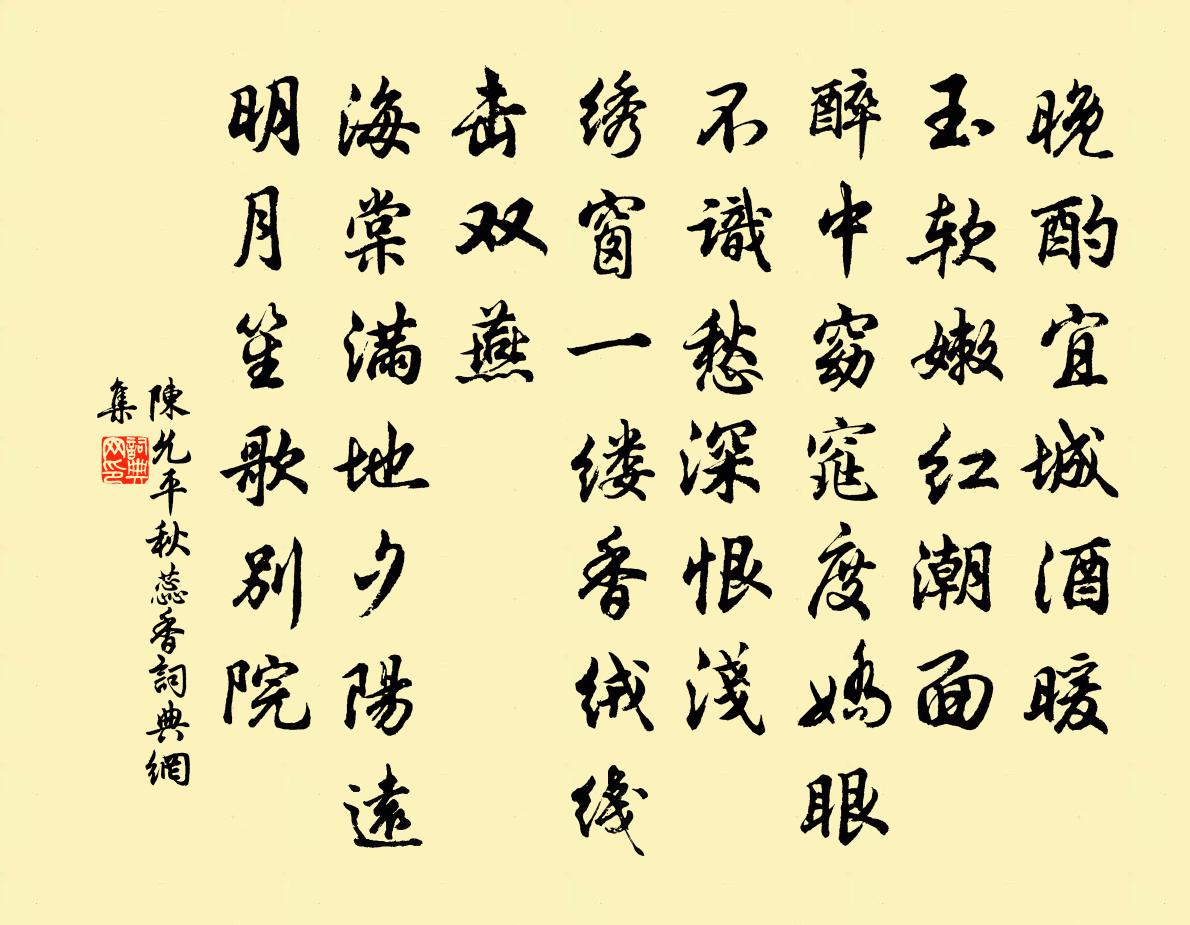 晚酌宜城酒暖
玉软嫩红潮面
醉中窈窕度嬌眼
不識愁深恨淺
绣窗一缕香绒线
击双燕
海棠满地夕陽遠
明月笙歌别院
陳允平秋蕊香詞典網
集
詞典网印